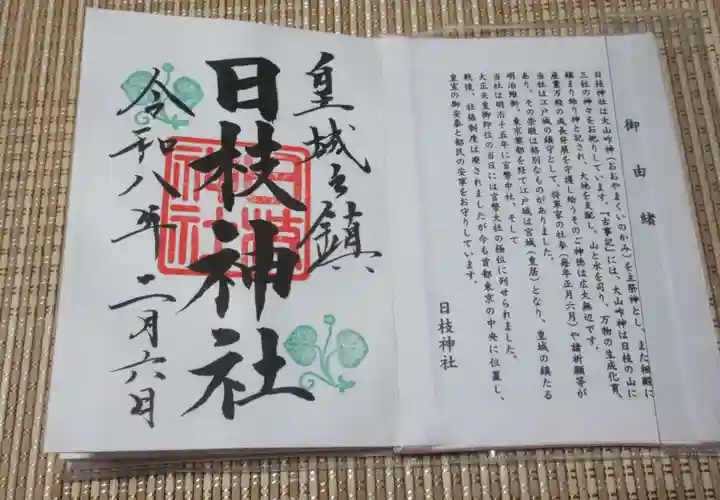 御由緒
日枝神社は大山咋神(おおやまくいのかみ)を主祭神とし、また相殿に
三社の神々をお祀りしています。『古事記』には、大山咋神は日枝の山に
鎮まり給う神と記され、大地を支配し、山と水を司り、万物の生成化育、
産業万般の成長発展を守護し給うそのご神徳は広大無辺です。
当社は江戸城の鎮守として、将軍家の社参(毎年正月六月)や諸祈願等が
あり、その崇敬は格別なものがありました。
明治維新、東京奠都を経て江戸城は宮城(皇居)となり、皇城の鎮たる
当社は明治十五年に官幣中社、そして
大正天皇御即位の当日には官幣大社の極位に列せられました。
戦後、社格制度は廃されましたが今も首都東京の中央に位置し、
皇室の御安泰と都民の安寧をお守りしています。
日枝神社
皇城之鎮
日枝神社
日枝神社
令和八年 二月六日